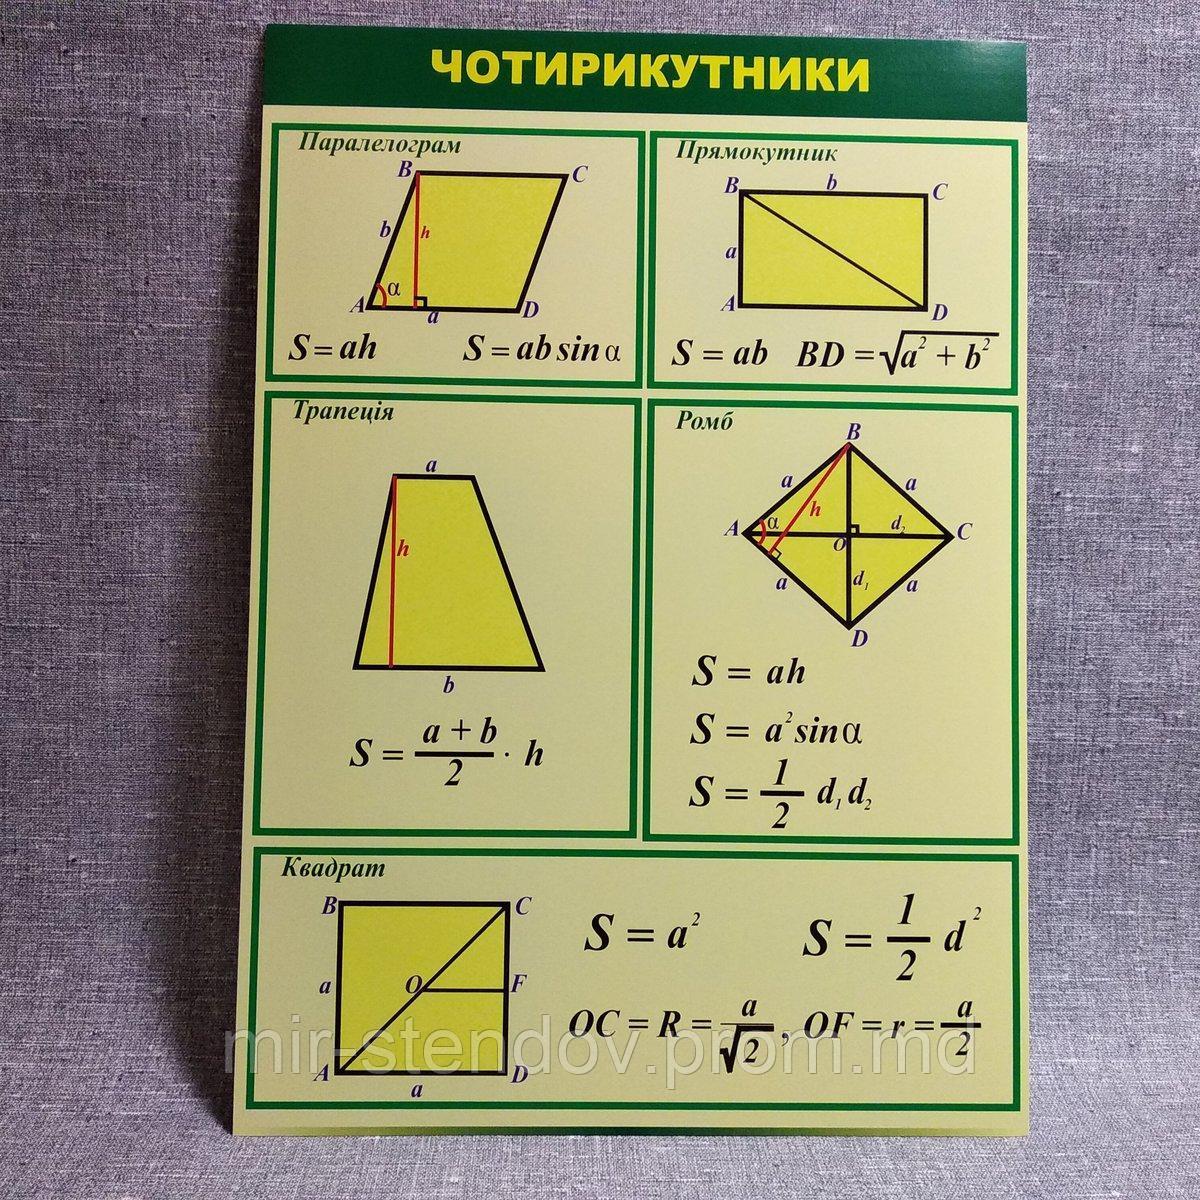 ЧОТИРИКУТНИКИ
Паралелограм
B C
b h
α
A a D
S = ah S = ab sin α
Прямокутник
B b C
a
A D
S = ab BD = √a² + b²
Трапеція
a
h
b
S = a + b / 2 · h
Ромб
B
a a
h
A α d₂ C
O
a d₁ a
D
S = ah
S = a² sin α
S = 1/2 d₁ d₂
Квадрат
B C
a O F
A a D
S = a² S = 1/2 d²
OC = R = a/√2 , OF = r = a/2
mir-stendov.prom.md